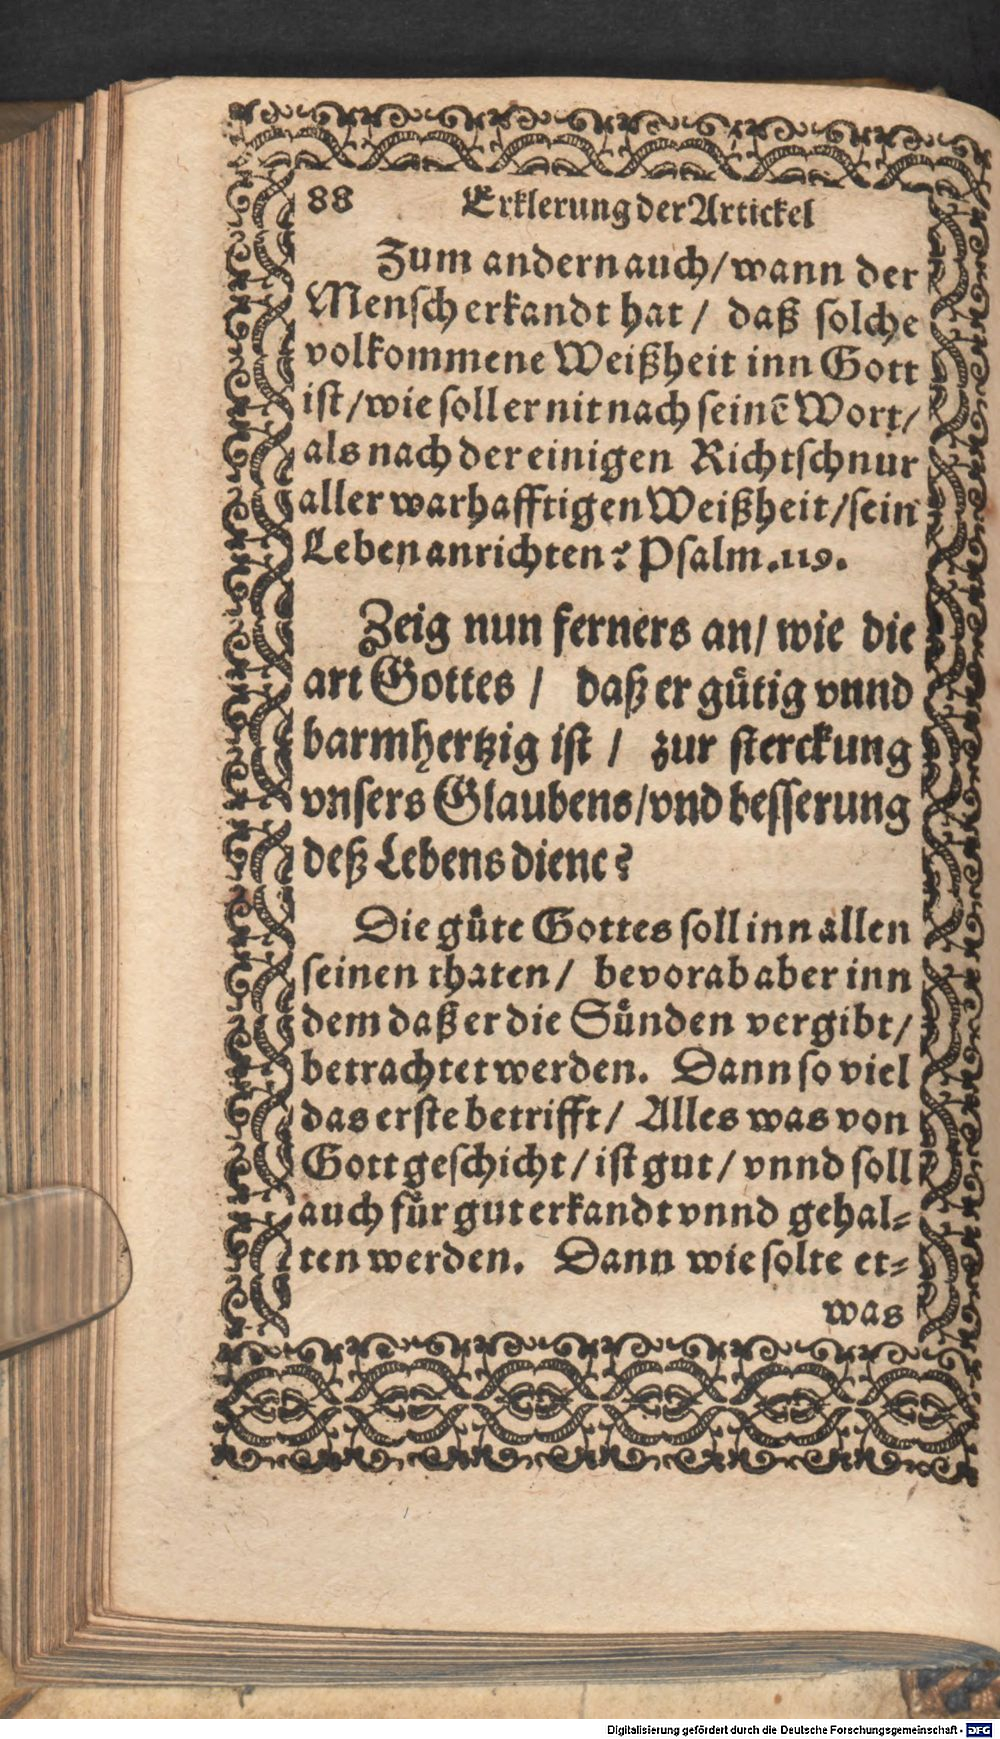 88 Erklerung der Artickel
Zum andern auch/ wann der
Mensch erkandt hat/ daß solche
volkommene Weißheit inn Gott
ist/ wie soll er nit nach seinē Wort/
als nach der einigen Richtschnur
aller warhafftigen Weißheit/ sein
Leben anrichten? Psalm. 119.
Zeig nun ferners an/ wie die
art Gottes/ daß er gütig vnnd
barmhertzig ist/ zur sterckung
vnsers Glaubens/ vnd besserung
deß Lebens diene?
Die güte Gottes soll inn allen
seinen thaten/ bevorab aber inn
dem daß er die Sünden vergibt/
betrachtet werden. Dann so viel
das erste betrifft/ Alles was von
Gott geschicht/ ist gut/ vnnd soll
auch für gut erkandt vnnd gehal-
ten werden. Dann wie solte et-
was
Digitalisierung gefördert durch die Deutsche Forschungsgemeinschaft - DFG